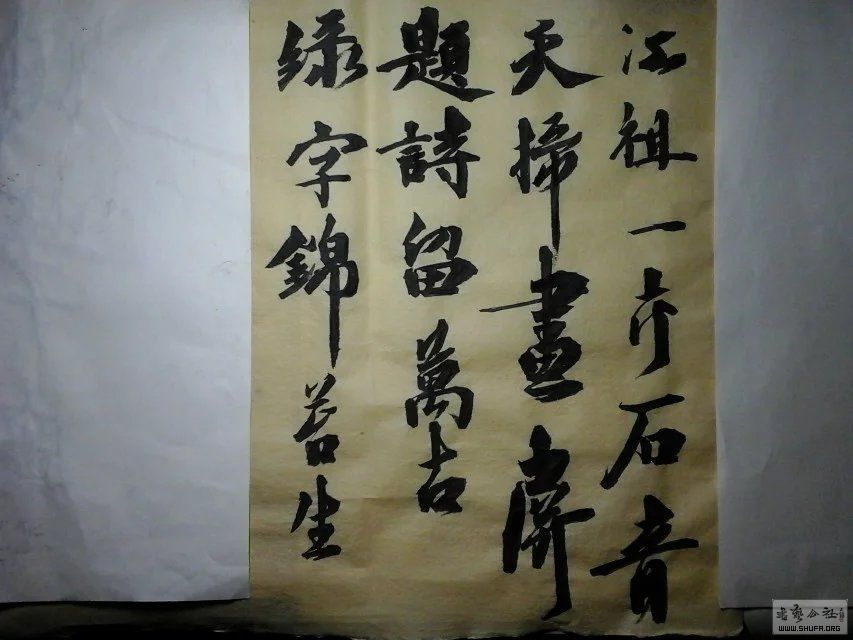 江祖一片石青
天掃畫屏
題詩留萬古
绿字錦苔生
书艺公社
WWW.SHUFA.ORG